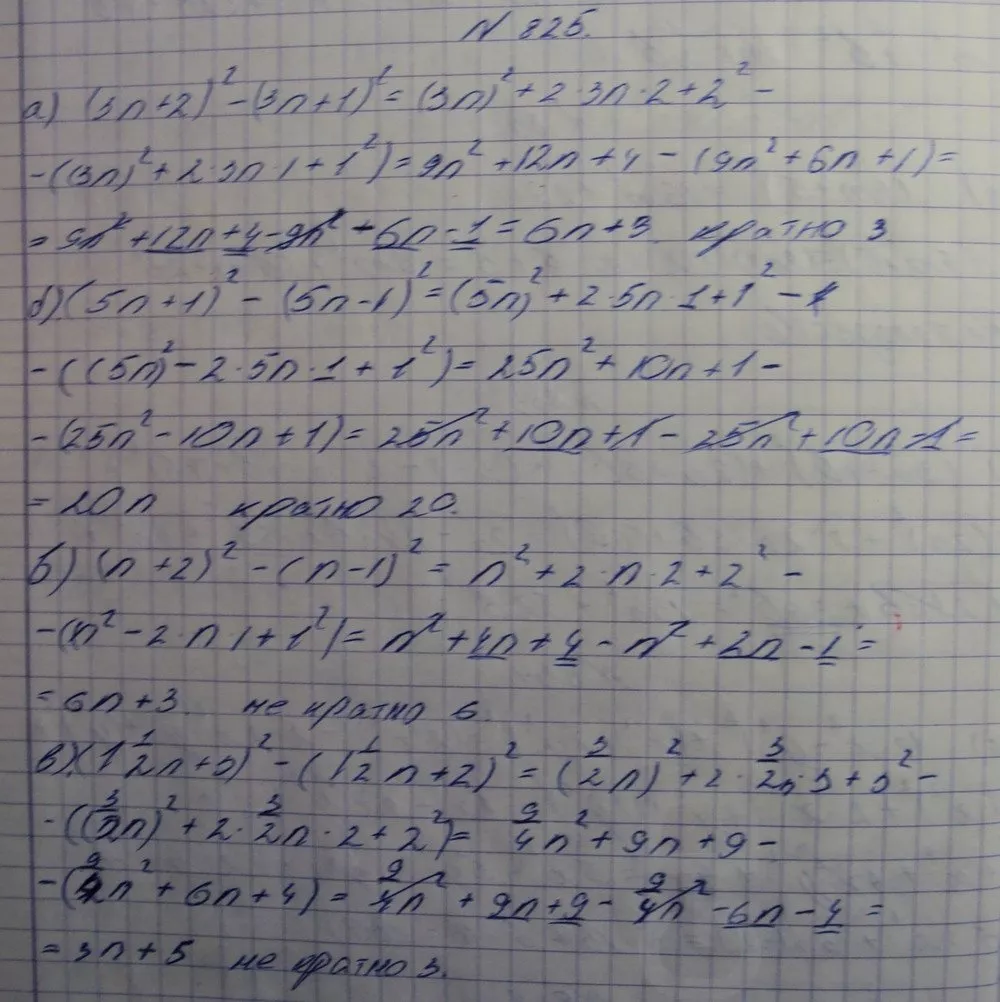 N 825.
а) (3n+2)² - (3n+1)² = (3n)² + 2·3n·2 + 2² -
- ((3n)² + 2·3n·1 + 1²) = 9n² + 12n + 4 - (9n² + 6n + 1) =
= 9n² + 12n + 4 - 9n² + 6n - 1 = 6n + 3 кратно 3
б) (5n+1)² - (5n-1)² = (5n)² + 2·5n·1 + 1² -
- ((5n)² - 2·5n·1 + 1²) = 25n² + 10n + 1 -
- (25n² - 10n + 1) = 25n² + 10n + 1 - 25n² + 10n - 1 =
= 20n кратно 20.
б) (n+2)² - (n-1)² = n² + 2·n·2 + 2² -
- (n² - 2·n·1 + 1²) = n² + 4n + 4 - n² + 2n - 1 =
= 6n + 3 не кратно 6.
в) (1 1/2n+3)² - (1 1/2n+2)² = (3/2n)² + 2·3/2n·3 + 3² -
- ((3/2n)² + 2·3/2n·2 + 2²) = 9/4n² + 9n + 9 -
- (9/4n² + 6n + 4) = 9/4n² + 9n + 9 - 9/4n² - 6n - 4 =
= 3n + 5 не кратно 3.